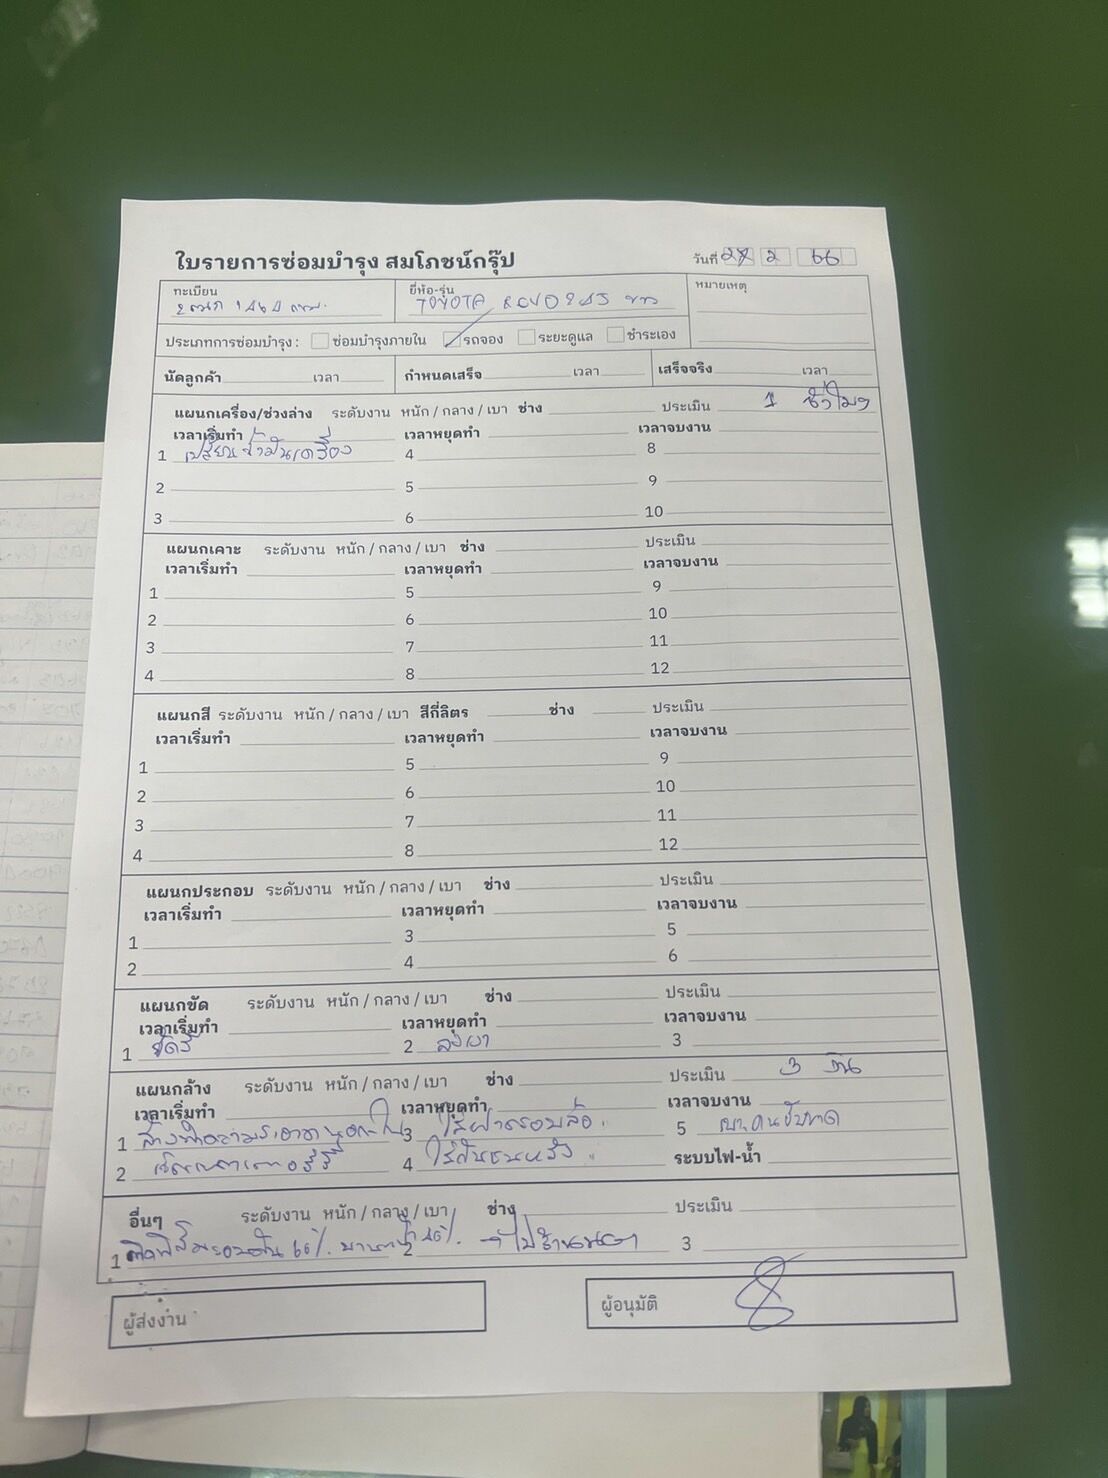 ใบรายการซ่อมบำรุง สมโภชน์กรุ๊ป
วันที่ 2 66
ทะเบียน
ยี่ห้อ-รุ่น TOYOTA REVO ขาว
หมายเหตุ
ประเภทการซ่อมบำรุง : ซ่อมบำรุงภายใน รถจอง ระยะดูแล ชำระเอง
นัดลูกค้า เวลา กำหนดเสร็จ เวลา เสร็จจริง เวลา
แผนกเครื่อง/ช่วงล่าง ระดับงาน หนัก / กลาง / เบา ช่าง ประเมิน 1 ชั่วโมง
เวลาเริ่มทำ เวลาหยุดทำ เวลาจบงาน
1 เปลี่ยนน้ำมันเครื่อง 4 8
2 5 9
3 6 10
แผนกเคาะ ระดับงาน หนัก / กลาง / เบา ช่าง ประเมิน
เวลาเริ่มทำ เวลาหยุดทำ เวลาจบงาน
1 5 9
2 6 10
3 7 11
4 8 12
แผนกสี ระดับงาน หนัก / กลาง / เบา สีกี่ลิตร ช่าง ประเมิน
เวลาเริ่มทำ เวลาหยุดทำ เวลาจบงาน
1 5 9
2 6 10
3 7 11
4 8 12
แผนกประกอบ ระดับงาน หนัก / กลาง / เบา ช่าง ประเมิน
เวลาเริ่มทำ เวลาหยุดทำ เวลาจบงาน
1 3 5
2 4 6
แผนกขัด ระดับงาน หนัก / กลาง / เบา ช่าง ประเมิน
เวลาเริ่มทำ เวลาหยุดทำ เวลาจบงาน
1 ขัดสี 2 ลงเงา 3
แผนกล้าง ระดับงาน หนัก / กลาง / เบา ช่าง ประเมิน 3 วัน
เวลาเริ่มทำ เวลาหยุดทำ เวลาจบงาน
1 ล้างทำความสะอาดนอกใน 3 ใส่ฝาครอบล้อ 5
2 4 ใส่กันชนหลัง ระบบไฟ-น้ำ
อื่นๆ ระดับงาน หนัก / กลาง / เบา ช่าง ประเมิน
1 ติดฟิล์มรอบคัน 60% บานหน้า 40% 2 3
ผู้ส่งงาน
ผู้อนุมัติ